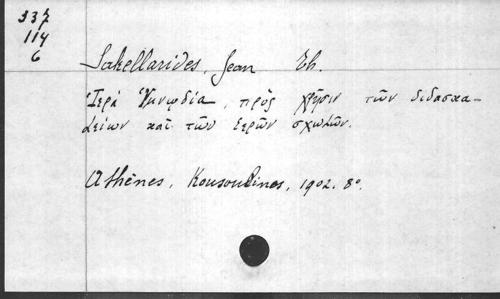 337
114
6
Sakellarides, Jean Th.
Ἱερὰ Ὑμνῳδία, πρὸς χρῆσιν τῶν διδασκα-
λείων καὶ τῶν ἱερῶν σχολῶν.
Athènes, Kousoulinos, 1902. 8°.